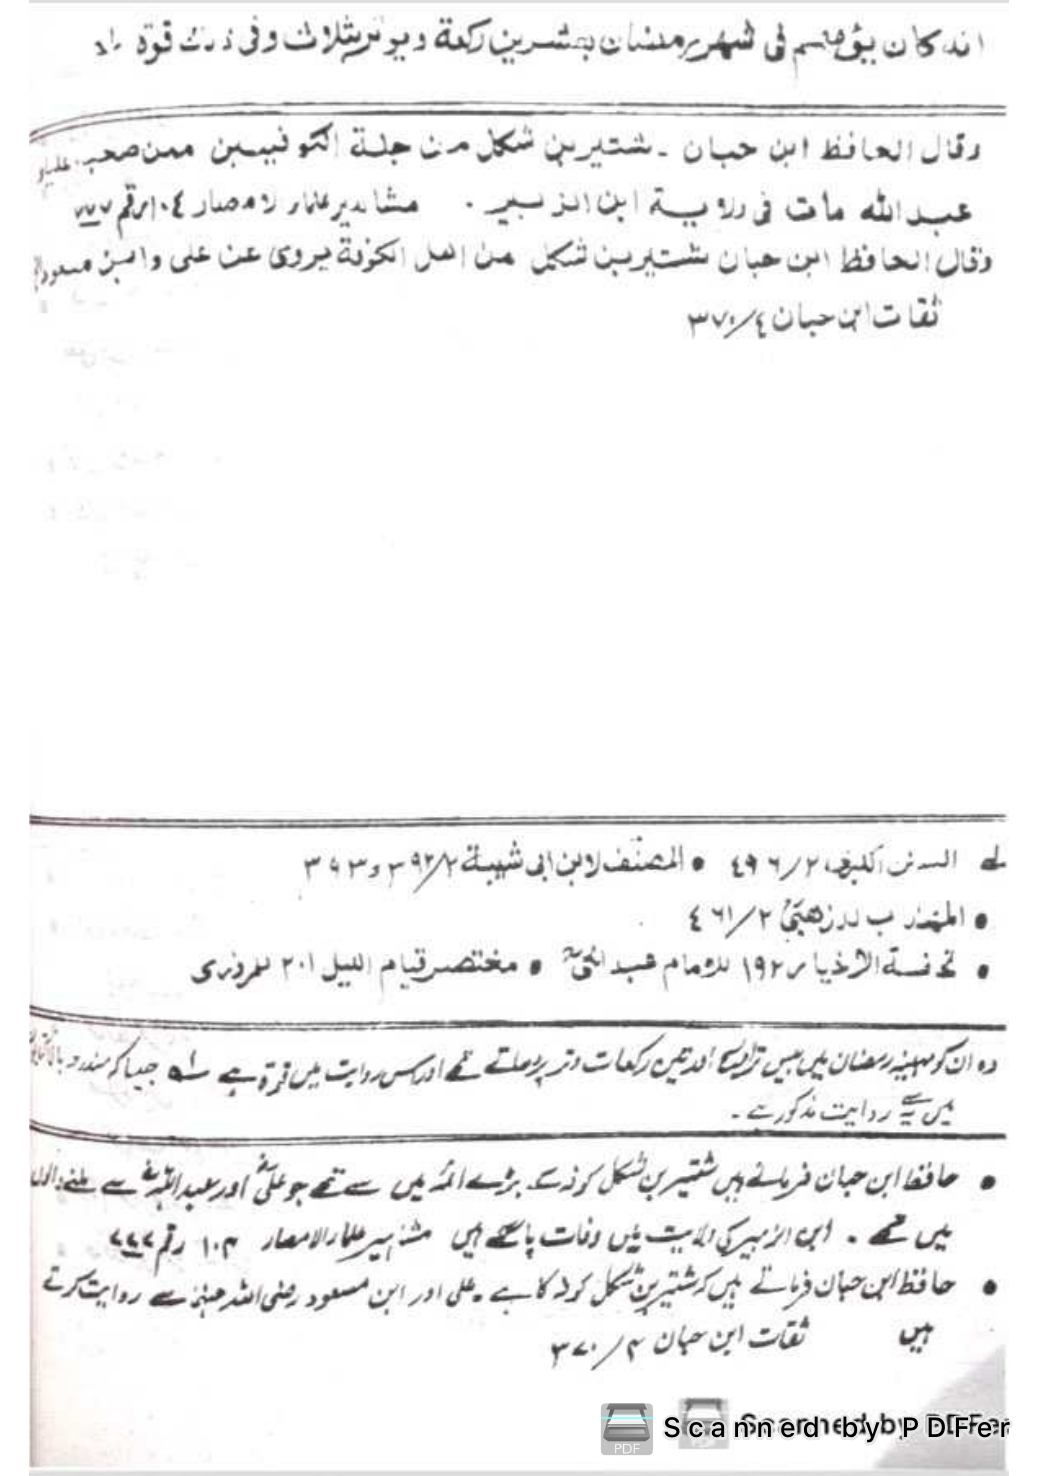 انه كان يؤمهم فى شهر رمضان بعشرين ركعة ويوتر بثلاث وفى ذلك قوة
وقال الحافظ ابن حبان ـ شتير بن شكل من جلة الكوفيين ممن صحب علياو
عبدالله مات فى ولاية ابن الزبير . مشاهير علماء لامصار ١٠٤ رقم ٧٧٧
وقال الحافظ ابن حبان شتير بن شكل من اهل الكوفة يروى عن على وابن مسعود
ثقات ابن حبان ٤/٣٧٠
لے السنن الكبرى ٢/٤٩٦ • المصنف لابن ابى شيبة ٢/٣٩٢ و ٣٩٣
• المهذب للذهبى ٢/٤٦١
• تحفة الاخيار ١٩٢ للامام عبدالحى • مختصر قيام الليل ٢٠١ للمروزى
وہ ان کو مہینہ رمضان میں بیس تراویح اور تین رکعات وتر پڑھاتے تھے اور اس روایت میں قوۃ ہے جیسا کہ مندرجہ بالا
میں یہ روایت مذکور ہے ۔
• حافظ ابن حبان فرماتے ہیں شتیر بن شکل کوفہ کے بڑے ائمہ میں سے تھے جو علی اور عبداللہ سے ملنے والوں
میں تھے ۔ ابن الزبیر کی ولایت میں وفات پا گئے ہیں مشاہیر علمار الامصار ۱۰۴ رقم ۷۷۷
• حافظ ابن حبان فرماتے ہیں کہ شتیر بن شکل کوفہ کا ہے ۔ علی اور ابن مسعود رضی اللہ عنہما سے روایت کرتے
ہیں ثقات ابن حبان ۴/۳۷۰
PDF Scanned by PDFer